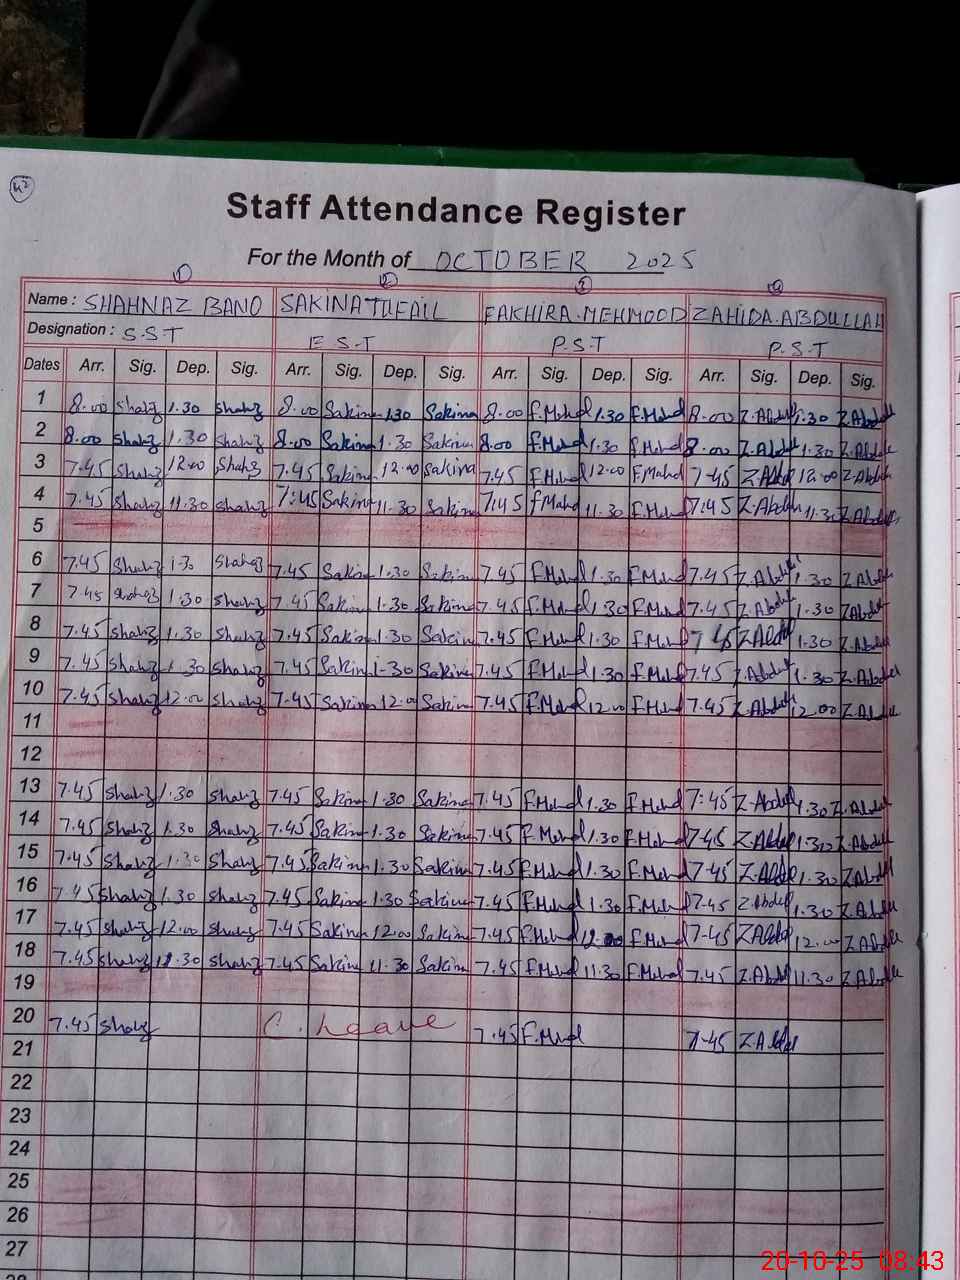 42
Staff Attendance Register
For the Month of OCTOBER 2025
1 2 3 4
Name : SHAHNAZ BANO SAKINA TUFAIL FAKHIRA.MEHMOOD ZAHIDA.ABDULLAH
Designation : S.S.T E S.T P.S.T P.S.T
Dates Arr. Sig. Dep. Sig. Arr. Sig. Dep. Sig. Arr. Sig. Dep. Sig. Arr. Sig. Dep. Sig.
1 8.00 Shahz 1.30 Shahz 8.00 Sakina 1.30 Sakina 8.00 F.Mehd 1.30 F.Mehd 8.00 Z.Abdul 1.30 Z.Abdul
2 8.00 Shahz 1.30 Shahz 8.00 Sakina 1.30 Sakina 8.00 F.Mehd 1.30 F.Mehd 8.00 Z.Abdul 1.30 Z.Abdul
3 7.45 Shahz 12.00 Shahz 7.45 Sakina 12.00 Sakina 7.45 F.Mehd 12.00 F.Mehd 7-45 Z.Abdul 12.00 Z.Abdul
4 7.45 Shahz 11.30 Shahz 7:45 Sakina 11.30 Sakina 7:45 F.Mehd 11.30 F.Mehd 7:45 Z.Abdul 11.30 Z.Abdul
5
6 7.45 Shahz 1.30 Shahz 7.45 Sakina 1.30 Sakina 7.45 F.Mehd 1.30 F.Mehd 7.45 Z.Abdul 1.30 Z.Abdul
7 7.45 Shahz 1.30 Shahz 7.45 Sakina 1.30 Sakina 7.45 F.Mehd 1.30 F.Mehd 7.45 Z.Abdul 1.30 Z.Abdul
8 7.45 Shahz 1.30 Shahz 7.45 Sakina 1.30 Sakina 7.45 F.Mehd 1.30 F.Mehd 7.45 Z.Abdul 1.30 Z.Abdul
9 7.45 Shahz 1.30 Shahz 7.45 Sakina 1-30 Sakina 7.45 F.Mehd 1.30 F.Mehd 7.45 Z.Abdul 1.30 Z.Abdul
10 7.45 Shahz 12.00 Shahz 7.45 Sakina 12.00 Sakina 7.45 F.Mehd 12.00 F.Mehd 7.45 Z.Abdul 12.00 Z.Abdul
11
12
13 7.45 Shahz 1.30 Shahz 7.45 Sakina 1.30 Sakina 7.45 F.Mehd 1.30 F.Mehd 7:45 Z.Abdul 1.30 Z.Abdul
14 7.45 Shahz 1.30 Shahz 7.45 Sakina 1.30 Sakina 7.45 F.Mehd 1.30 F.Mehd 7-45 Z.Abdul 1.30 Z.Abdul
15 7.45 Shahz 1.30 Shahz 7.45 Sakina 1.30 Sakina 7.45 F.Mehd 1.30 F.Mehd 7-45 Z.Abdul 1.30 Z.Abdul
16 7.45 Shahz 1.30 Shahz 7.45 Sakina 1.30 Sakina 7.45 F.Mehd 1.30 F.Mehd 7-45 Z.Abdul 1.30 Z.Abdul
17 7.45 Shahz 12.00 Shahz 7.45 Sakina 12.00 Sakina 7.45 F.Mehd 12.00 F.Mehd 7-45 Z.Abdul 12.00 Z.Abdul
18 7.45 Shahz 11.30 Shahz 7.45 Sakina 11.30 Sakina 7.45 F.Mehd 11.30 F.Mehd 7.45 Z.Abdul 11.30 Z.Abdul
19
20 7.45 Shahz C. Leave 7.45 F.Mehd 7-45 Z.Abdul
21
22
23
24
25
26
27
20-10-25 08:43